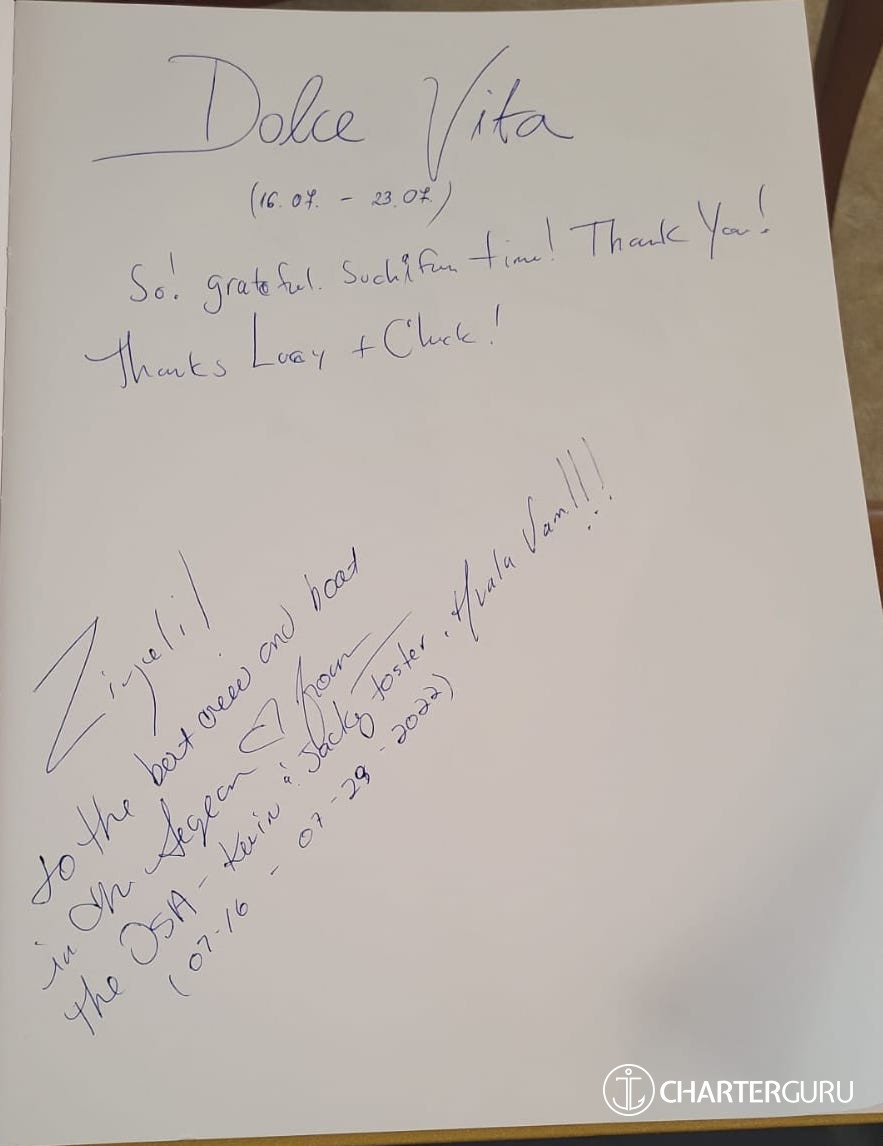 Dolce Vita
(16.07. - 23.07.)
So! grateful. Such a fun time! Thank You!
Thanks + Chuck!
Zivjeli!
to the best crew and boat
in the Aegean from
the USA - Kevin & Jacky Foster. Hvala Vam!!!
(07-16 - 07-29-2022)
CHARTERGURU